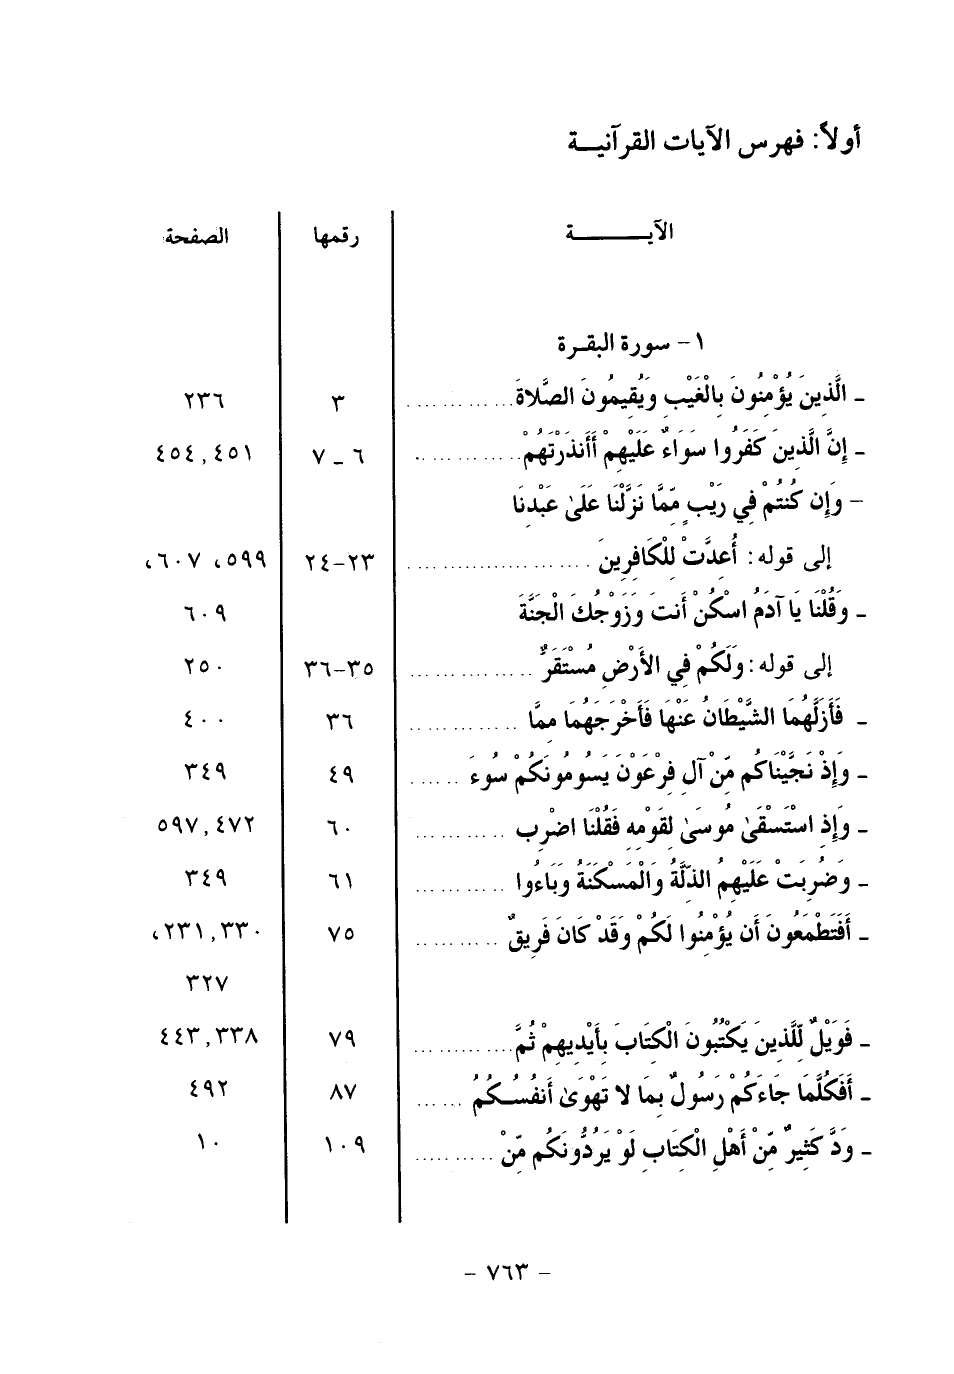 أولاً: فهرس الآيات القرآنيـة
الآيـــــة رقمها الصفحة
١- سورة البقـرة
ـ الَّذِينَ يُؤْمِنُونَ بِالْغَيْبِ وَيُقِيمُونَ الصَّلاةَ............ ٣ ٢٣٦
ـ إِنَّ الَّذِينَ كَفَرُوا سَوَاءٌ عَلَيْهِمْ أَأَنذَرْتَهُمْ............ ٦ ـ ٧ ٤٥١, ٤٥٤
– وَإِن كُنتُمْ فِي رَيْبٍ مِّمَّا نَزَّلْنَا عَلَىٰ عَبْدِنَا
إلى قوله: أُعِدَّتْ لِلْكَافِرِينَ ..................... ٢٣–٢٤ ٥٩٩، ٦٠٧،
ـ وَقُلْنَا يَا آدَمُ اسْكُنْ أَنتَ وَزَوْجُكَ الْجَنَّةَ ٦٠٩
إلى قوله: وَلَكُمْ فِي الأَرْضِ مُسْتَقَرٌّ ............ ٣٥–٣٦ ٢٥٠
ـ فَأَزَلَّهُمَا الشَّيْطَانُ عَنْهَا فَأَخْرَجَهُمَا مِمَّا ............ ٣٦ ٤٠٠
ـ وَإِذْ نَجَّيْنَاكُم مِّنْ آلِ فِرْعَوْنَ يَسُومُونَكُمْ سُوءَ ...... ٤٩ ٣٤٩
ـ وَإِذِ اسْتَسْقَىٰ مُوسَىٰ لِقَوْمِهِ فَقُلْنَا اضْرِب .......... ٦٠ ٤٧٢, ٥٩٧
ـ وَضُرِبَتْ عَلَيْهِمُ الذِّلَّةُ وَالْمَسْكَنَةُ وَبَاءُوا .......... ٦١ ٣٤٩
ـ أَفَتَطْمَعُونَ أَن يُؤْمِنُوا لَكُمْ وَقَدْ كَانَ فَرِيقٌ .......... ٧٥ ٣٣٠, ٢٣١،
٣٢٧
ـ فَوَيْلٌ لِّلَّذِينَ يَكْتُبُونَ الْكِتَابَ بِأَيْدِيهِمْ ثُمَّ............ ٧٩ ٣٣٨, ٤٤٣
ـ أَفَكُلَّمَا جَاءَكُمْ رَسُولٌ بِمَا لا تَهْوَىٰ أَنفُسُكُمُ ...... ٨٧ ٤٩٢
ـ وَدَّ كَثِيرٌ مِّنْ أَهْلِ الْكِتَابِ لَوْ يَرُدُّونَكُم مِّنْ .......... ١٠٩ ١٠
– ٧٦٣ –